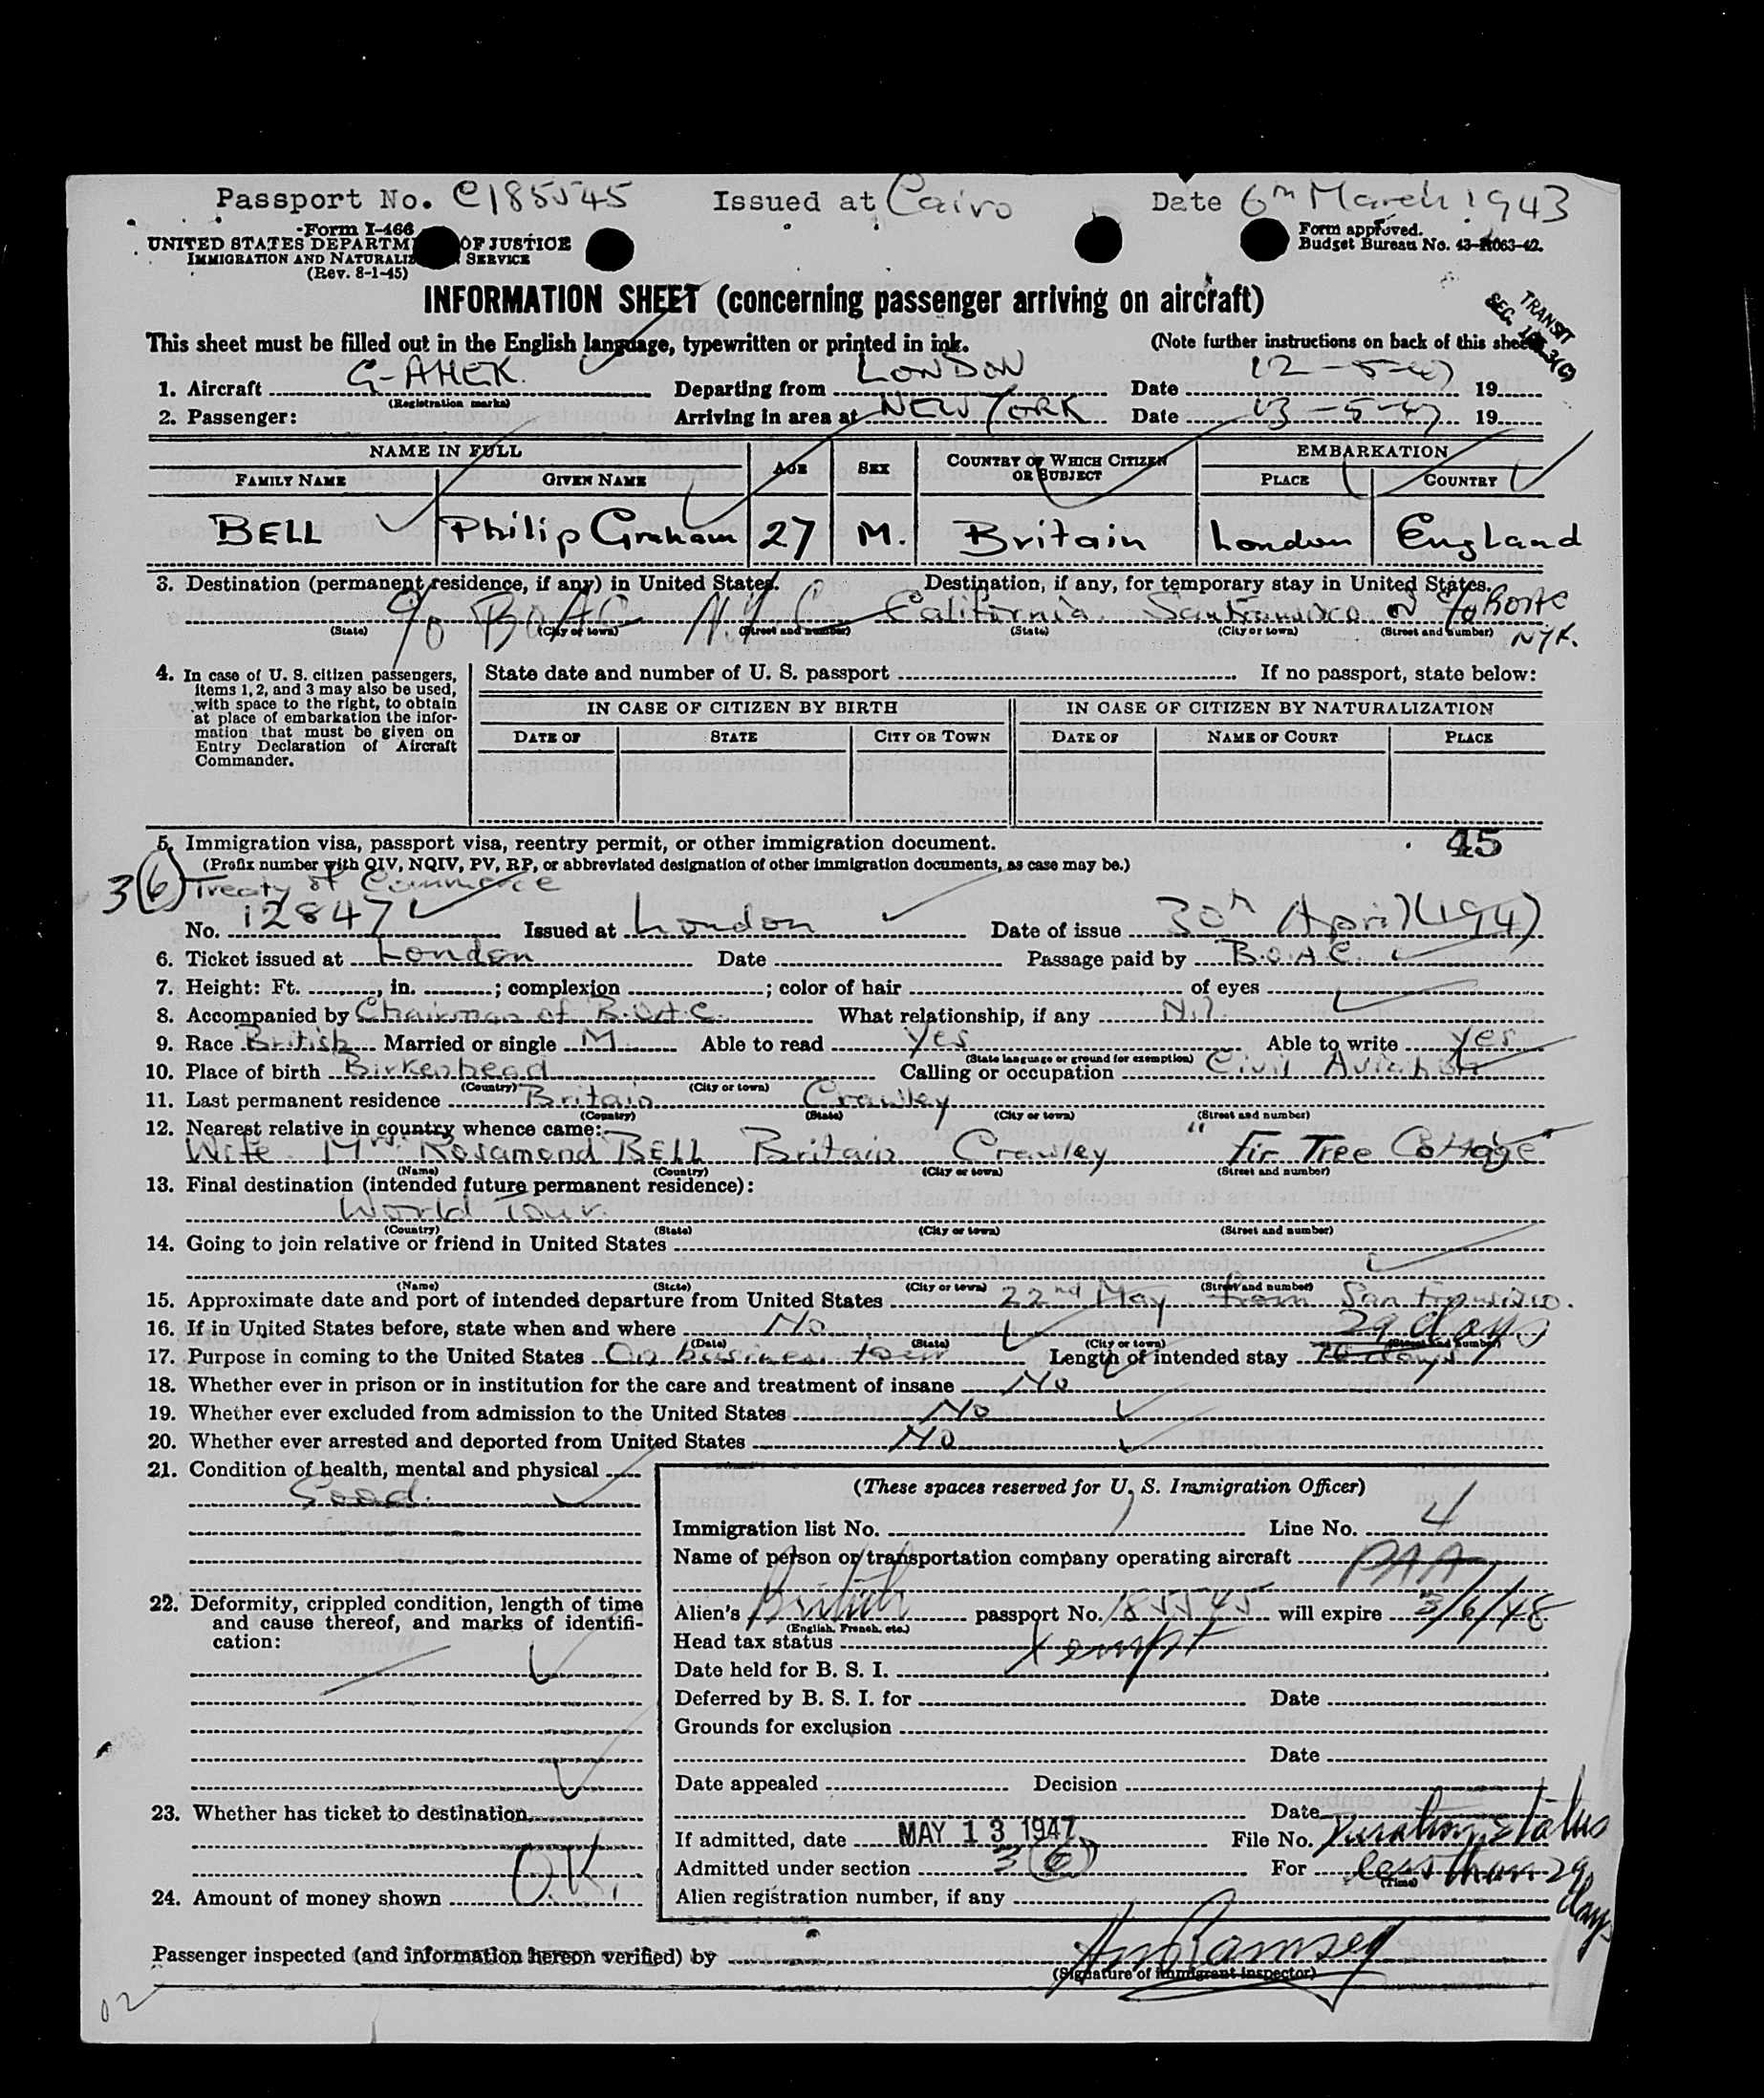 Passport No. C185545 Issued at Cairo Date 6th March 1943
Form I-466
UNITED STATES DEPARTM OF JUSTICE
IMMIGRATION AND NATURALIZ SERVICE
(Rev. 8-1-45)
Form approved.
Budget Bureau No. 43-R063-42.
INFORMATION SHEET (concerning passenger arriving on aircraft)
TRANSIT
SEC. 3(3)
This sheet must be filled out in the English language, typewritten or printed in ink. (Note further instructions on back of this sheet)
1. Aircraft G-AHEK. Departing from LONDON Date 12-5-47 19
(Registration marks)
2. Passenger: Arriving in area at NEW YORK Date 13-5-47 19
NAME IN FULL AGE SEX COUNTRY OF WHICH CITIZEN OR SUBJECT EMBARKATION
FAMILY NAME GIVEN NAME PLACE COUNTRY
BELL Philip Graham 27 M. Britain London England
3. Destination (permanent residence, if any) in United States. Destination, if any, for temporary stay in United States.
c/o BOAC N.Y.C California. San Francisco or c/o BOAC
(State) (City or town) (Street and number) (State) (City or town) (Street and number) NYK.
4. In case of U. S. citizen passengers, items 1, 2, and 3 may also be used, with space to the right, to obtain at place of embarkation the information that must be given on Entry Declaration of Aircraft Commander.
State date and number of U. S. passport If no passport, state below:
IN CASE OF CITIZEN BY BIRTH IN CASE OF CITIZEN BY NATURALIZATION
DATE OF STATE CITY OR TOWN DATE OF NAME OF COURT PLACE
5. Immigration visa, passport visa, reentry permit, or other immigration document. 45
(Prefix number with QIV, NQIV, PV, RP, or abbreviated designation of other immigration documents, as case may be.)
3(6) Treaty of Commerce
No. 12847 Issued at London Date of issue 30th April (1947)
6. Ticket issued at London Date Passage paid by B.O.A.C.
7. Height: Ft. , in. ; complexion ; color of hair of eyes
8. Accompanied by Chairman of B.O.A.C. What relationship, if any Nil.
9. Race British Married or single M. Able to read Yes Able to write Yes
(State language or ground for exemption)
10. Place of birth Birkenhead Calling or occupation Civil Aviation
(Country) (City or town)
11. Last permanent residence Britain Crawley
(Country) (State) (City or town) (Street and number)
12. Nearest relative in country whence came:
Wife Mrs. Rosamond BELL Britain Crawley "Fir Tree Cottage"
(Name) (Country) (City or town) (Street and number)
13. Final destination (intended future permanent residence):
World Tour.
(Country) (State) (City or town) (Street and number)
14. Going to join relative or friend in United States
(Name) (State) (City or town) (Street and number)
15. Approximate date and port of intended departure from United States 22nd May from San Francisco.
16. If in United States before, state when and where No
(Date) (State) (City or town) (Street and number)
29 days
17. Purpose in coming to the United States On business tour Length of intended stay 10 days
18. Whether ever in prison or in institution for the care and treatment of insane No
19. Whether ever excluded from admission to the United States No
20. Whether ever arrested and deported from United States No
21. Condition of health, mental and physical
Good.
22. Deformity, crippled condition, length of time and cause thereof, and marks of identification:
23. Whether has ticket to destination
O.K.
24. Amount of money shown
(These spaces reserved for U. S. Immigration Officer)
Immigration list No. 1 Line No. 4
Name of person or transportation company operating aircraft PAA
Alien's British passport No. 185545 will expire 3/6/48
(English, French, etc.)
Head tax status Xempt
Date held for B. S. I.
Deferred by B. S. I. for Date
Grounds for exclusion
Date
Date appealed Decision
Date
If admitted, date MAY 13 1947 File No. Duration status
Admitted under section 3(6) For less than 29 days
(Time)
Alien registration number, if any
Passenger inspected (and information hereon verified) by Ramsey
(Signature of immigrant inspector)
02